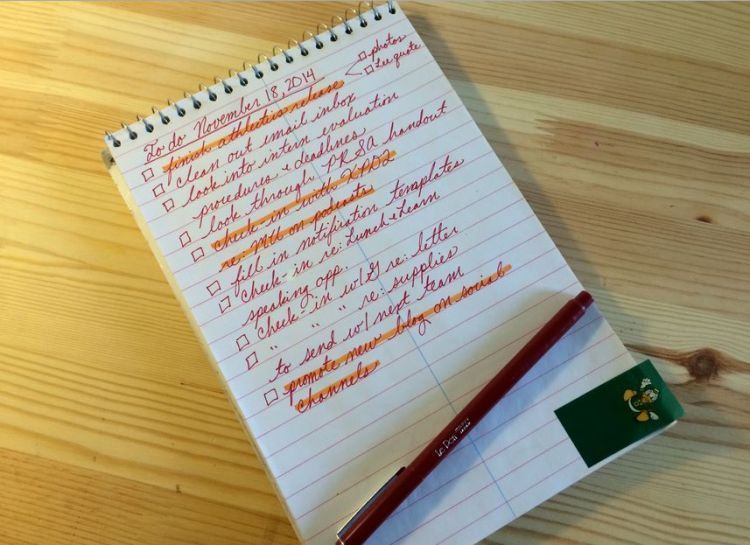 To do November 18, 2014
□ photos
□ Lee quote
□ finish athletics release
□ clean out email inbox
□ look into intern evaluation
procedures + deadlines
□ look through PRSA handout
□ check-in with XPD2
re: MU on podcasts
□ fill in notification templates
□ check-in re: Lunch & Learn
speaking opp.
□ check-in w/G re: letter
□ " " " re: supplies
to send w/ next team
□ promote new blog on social
channels
Le Pen